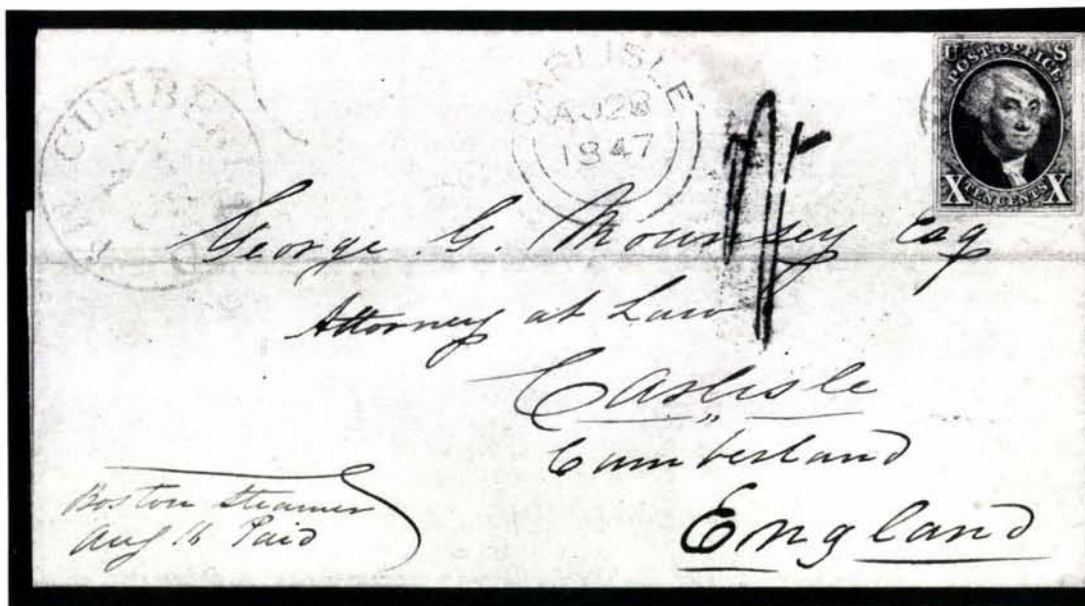 CUMBE
CARLISLE
AU 28
1847
U S
POST OFFICE
X TEN CENTS X
George. G. Mounsey Esq
Attorney at Law
Carlisle
Cumberland
England
Boston Steamer
Aug 16 Paid